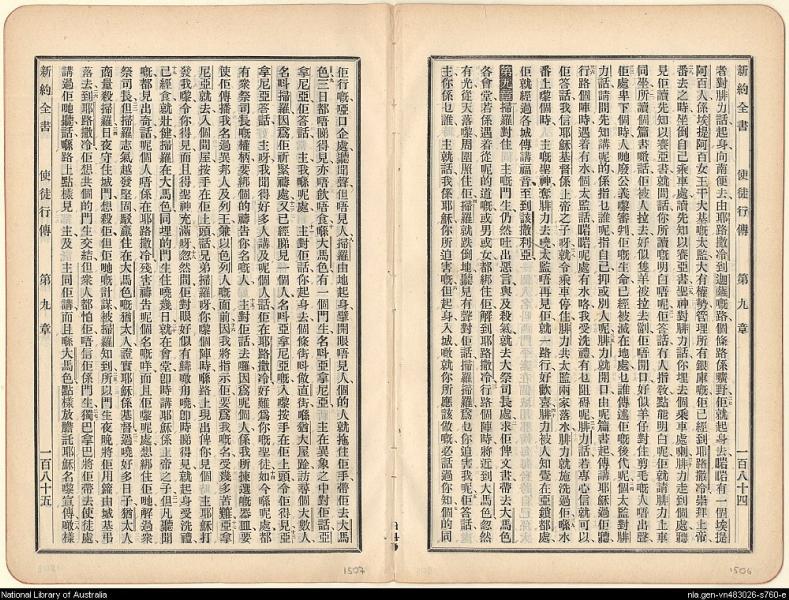 新約全書　使徒行傳　第九章　一百八十四
者對腓力話起身向南便去由耶路撒冷到迦薩嘅路個條路係曠野佢就起身去啱啱有一個埃提
阿百人係埃提阿百女王干大基嘅太監大有權勢管理所有銀庫嘅佢已經到耶路撒冷崇拜上帝
番去之時坐倒自己乘車處讀先知以賽亞書聖神對腓力話你埋去個乘車處喇腓力走到個處聽
見佢讀先知以賽亞書就問話你所讀嘅明白唔呢佢答話冇人指教點能明白呢佢就請腓力上車
同坐所讀個篇書噉話佢被人拉去好似隻羊被拉去劏佢唔開口好似羊仔對住剪毛嘅人唔出聲
佢處卑下個時人哋廢公義嚟審判佢嘅生命已經被滅在地處乜誰傳述佢嘅後代呢個太監對腓
力話請問先知講呢的係指乜誰呢指自己抑或別人呢腓力就開口由呢篇書起傳講耶穌過佢聽
行路個陣時遇着有水個太監話睇呢處有水咯我受洗禮有乜阻碍呢腓力話若專心信就可以
佢答話我信耶穌基督係上帝之子呀就令乘車停住腓力共太監兩家落水腓力就施洗過佢喺水
番上嚟個時人　主嘅聖神奪腓力去曉太監唔再見佢就一路行好歡喜腓力被人知覺在亞鎖都處
佢就經過各城傳講福音至到該撒利亞
第九章　掃羅對住　主嘅門生仍然吐出惡言與及殺氣就去大祭司長處求佢俾文書帶去大馬色
各會堂若係遇着從呢的道嘅或男或女都綁住佢解到耶路撒冷行路個陣時將近到大馬色忽然
有光從天落嚟周圍照住佢掃羅就跌倒地聽見有聲對佢話掃羅掃羅爲乜你迫害我呢佢答話
主你係乜誰　主就話我係耶穌你所迫害嘅但起身入城嘅就有你所應該做嘅必話過你知個的同
佢行嘅啞口企處聽聞聲但唔見人掃羅由地起身擘開眼唔見人個的人就拖住佢手帶佢去大馬
色三日都唔睇得見亦唔飲唔食喺大馬色有一個門生名叫亞拿尼亞　主在異象之中對佢話亞
拿尼亞佢答話　主我喺呢處　主對佢話你起身去個條街叫做直街喺猶大屋跲訪尋個大數人
名叫掃羅因爲佢祈緊禱處又已經睇見一個人名叫亞拿尼亞嘅入嚟按手在佢上頭令佢得見亞
拿尼亞答話　主呀我聞得好多人講及呢個人話佢在耶路撒冷好難爲你嘅聖徒如今喺呢處都
有衆祭司長嘅權柄要綁個的禱告你名嘅人　主對佢話去囉因爲呢個人係我所揀選嘅器皿要
使佢傳播我名過異邦人及列王兼以色列人嘅面前因我將指示佢要爲我嘅名受幾多苦難亞拿
尼亞就去入個間屋按手在佢上頭話兄弟掃羅呀你嚟個陣時喺路上現出俾你見個　主耶穌打
發我嚟令你得見而且得聖神充滿呀忽然間佢對眼好似有鱗噉甪曉嘅卽時睇得見就起身受洗禮
已經食就壯健掃羅在大馬色同埋的門生住曉幾日就在會堂卽時講耶穌係上帝之子但凡聽聞
嘅都見出奇話呢個人唔係在耶路撒冷殘害禱告呢個名嘅咩而且佢嚟呢處想綁住佢哋解過衆
祭司長但掃羅志氣越發堅固駁贏住在大馬色嘅猶太人證實耶穌係基督過曉好多日子猶太人
商量殺掃羅日夜守住城門想殺佢但佢哋嘅計謀被掃羅知到所以門生夜晚將佢用籮由城基弔
落去到耶路撒冷佢想共個的門生交結但衆人都怕佢唔信佢係門生獨巴拿巴將佢帶去使徒處
講過佢哋聽話喺路上點樣見　主及　主同佢講而且喺大馬色點樣放膽託耶穌名嚟宣傳噉樣
新約全書　使徒行傳　第九章　一百八十五
1507
1506
National Library of Australia
nla.gen-vn483026-s760-e